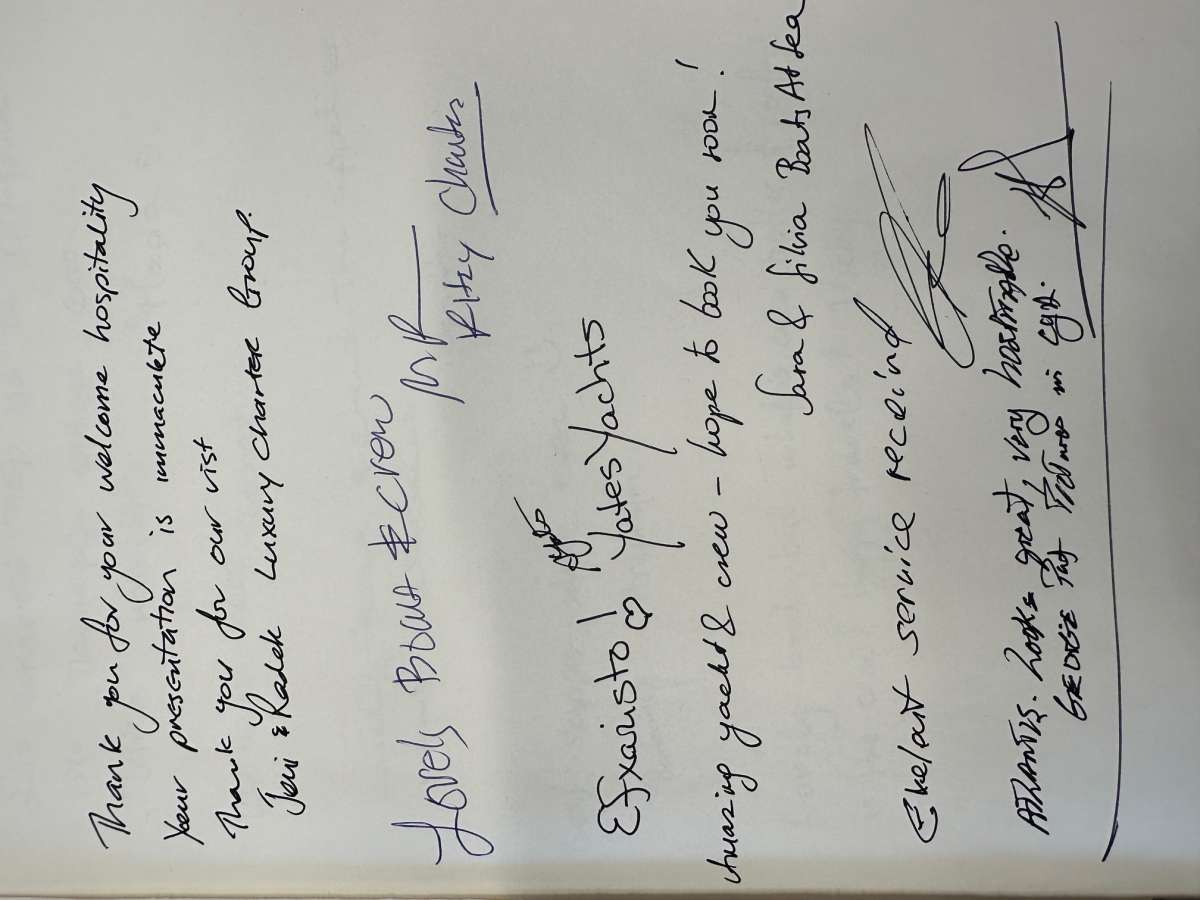 Thank you for your welcome hospitality
Your presentation is immaculate
Thank you for our vist
Jeni & Radek Luxury Charter Group.
Lovely Boat & Crew
Ritzy Charters
Efxaristo! ♡ Yates Yachts
Amazing yacht & crew - hope to book you soon!
Sara & Silvia Boats At Sea
Exelant service receind
ATLANTIS. Looks great, very hospitable.
GEORGE